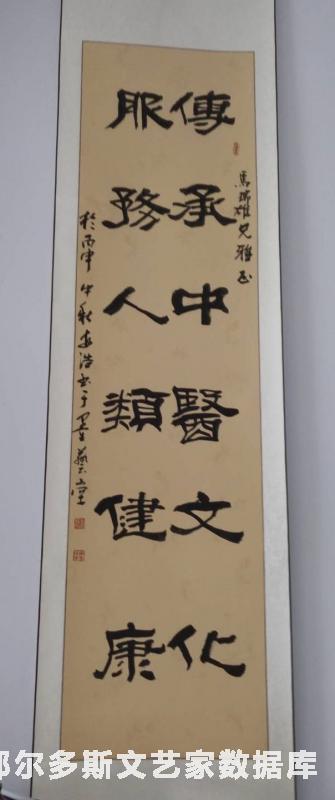 馬瑞雄兄雅正
傳承中醫文化
服務人類健康
於丙申中秋 浩書于墨藝堂
鄂尔多斯文艺家数据库